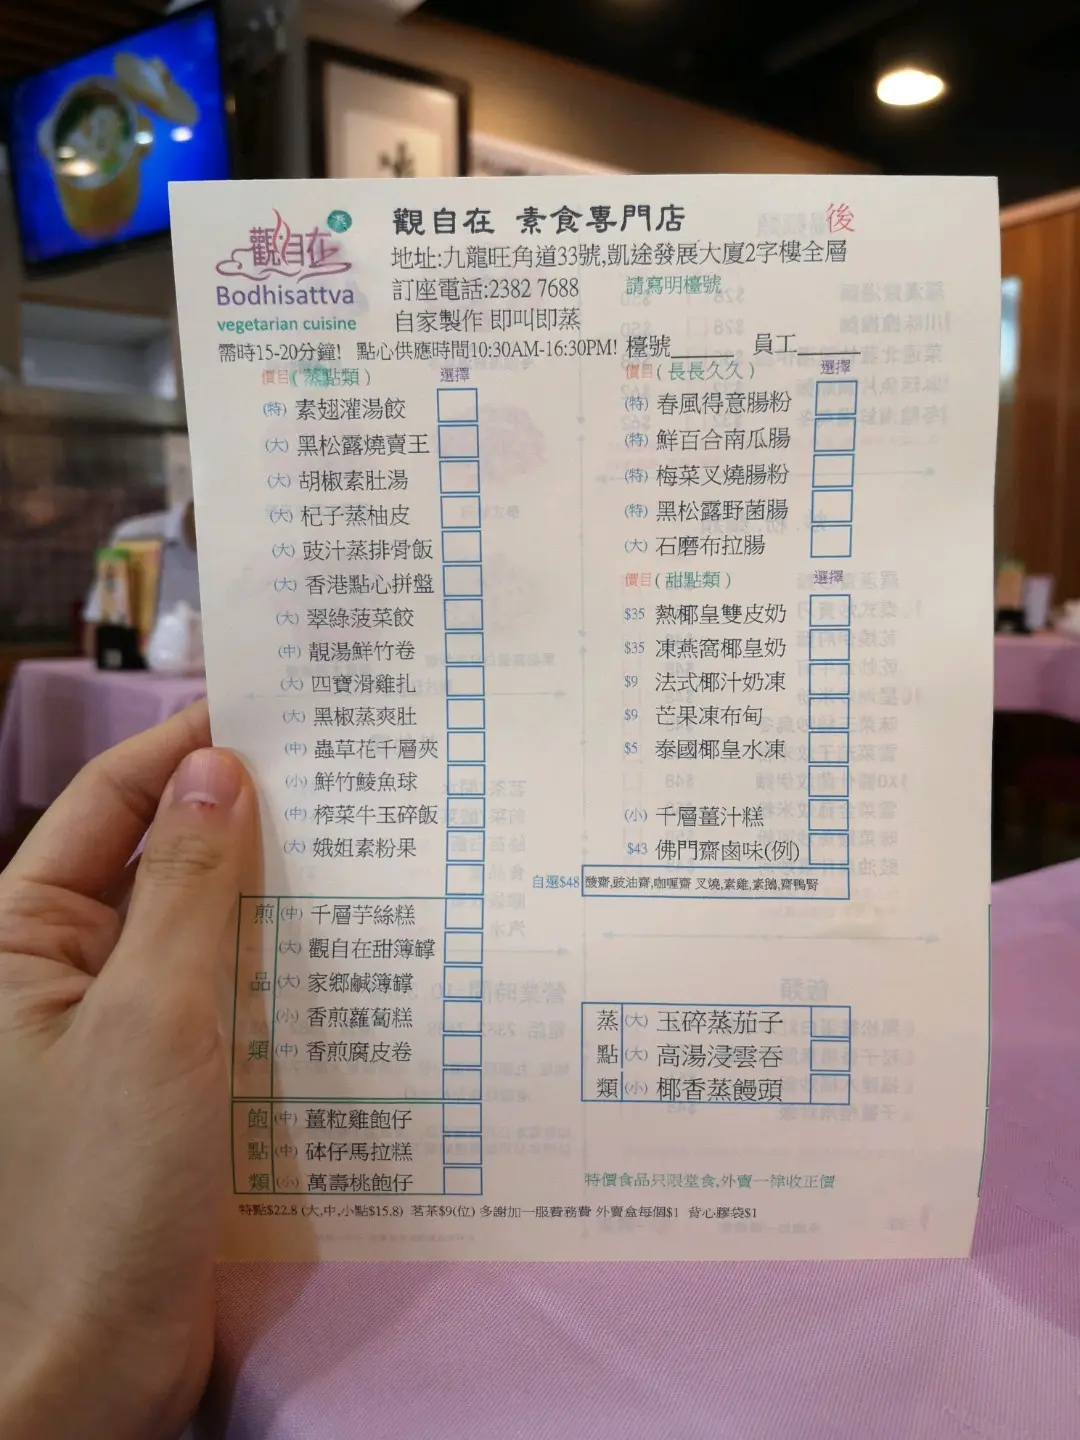 觀自在 素食専門店
後
觀自在
素
Bodhisattva
vegetarian cuisine
地址:九龍旺角道33號,凱途發展大廈2字樓全層
訂座電話:2382 7688
請寫明檯號
自家製作 即叫即蒸
需時15-20分鐘! 點心供應時間10:30AM-16:30PM! 檯號______ 員工______
價目(蒸點類) 選擇
(特) 素翅灌湯餃
(大) 黑松露燒賣王
(大) 胡椒素肚湯
(大) 杞子蒸柚皮
(大) 豉汁蒸排骨飯
(大) 香港點心拼盤
(大) 翠綠菠菜餃
(中) 靚湯鮮竹卷
(大) 四寶滑雞扎
(大) 黑椒蒸爽肚
(中) 蟲草花千層夾
(小) 鮮竹鯪魚球
(中) 榨菜牛玉碎飯
(大) 娥姐素粉果
煎品類
(中) 千層芋絲糕
(大) 觀自在甜簿罉
(大) 家鄉鹹簿罉
(小) 香煎蘿蔔糕
(中) 香煎腐皮卷
飽點類
(中) 薑粒雞飽仔
(中) 砵仔馬拉糕
(小) 萬壽桃飽仔
價目(長長久久) 選擇
(特) 春風得意腸粉
(特) 鮮百合南瓜腸
(特) 梅菜叉燒腸粉
(特) 黑松露野菌腸
(大) 石磨布拉腸
價目(甜點類) 選擇
$35 熱椰皇雙皮奶
$35 凍燕窩椰皇奶
$9 法式椰汁奶凍
$9 芒果凍布甸
$5 泰國椰皇水凍
(小) 千層薑汁糕
$43 佛門齋鹵味(例)
自選$48 酸齋,豉油齋,咖喱齋 叉燒,素雞,素鵝,齋鴨腎
蒸點類
(大) 玉碎蒸茄子
(大) 高湯浸雲吞
(小) 椰香蒸饅頭
特價食品只限堂食,外賣一律收正價
特點$22.8 (大,中,小點$15.8) 茗茶$9(位) 多謝加一服務費 外賣盒每個$1 背心膠袋$1